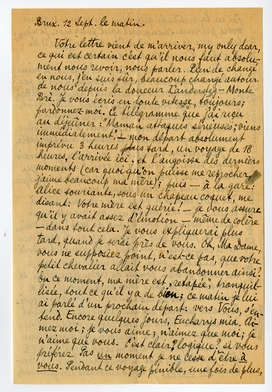 Brux. 12 Sept. le matin.
Votre lettre vient de m'arriver, my only dear,
ce qui est certain c'est qu'il nous faut absolu-
ment nous revoir, nous parler. Rien de changé
en nous, j'en suis sûr, beaucoup changé autour
de nous depuis la douceur
Je vous écris en toute vitesse, toujours;
pardonnez-moi. Le télégramme que j'ai reçu
au déjeuner: "Maman attaques sérieuses; viens
immédiatement; — mon départ absolument
imprévu 3 heures plus tard, un voyage de 18
heures, l'arrivée ici, et l'angoisse des derniers
moments (car quoiqu'on puisse me reprocher,
j'aime beaucoup ma mère); puis — à la gare:
Alice souriante, sous un chapeau coquet, me
disant: Votre mère est guérie! — je vous assure
qu'il y avait assez d'émotion — même de colère
— dans tout cela. Je vous expliquerai plus
tard, quand je serai près de vous. Oh, Ma Dame,
vous ne supposiez point, n'est-ce pas que votre
petit chevalier allait vous abandonner ainsi?
En ce moment, ma mère est, repétée, tranquil-
lisée, tout ce qu'il y a de ; ce matin je lui
ai parlé d'un prochain départ vers Vous, s'en-
tend. Encore quelques jours, Eucharys mia. Ai-
mez moi; je vous aime; n'aimez que moi; je
n'aime que vous. C'est clair? logique? si vous
préférez. Pas un moment je ne cesse d'être à
vous. Pendant ce voyage pénible, une fois de plus,